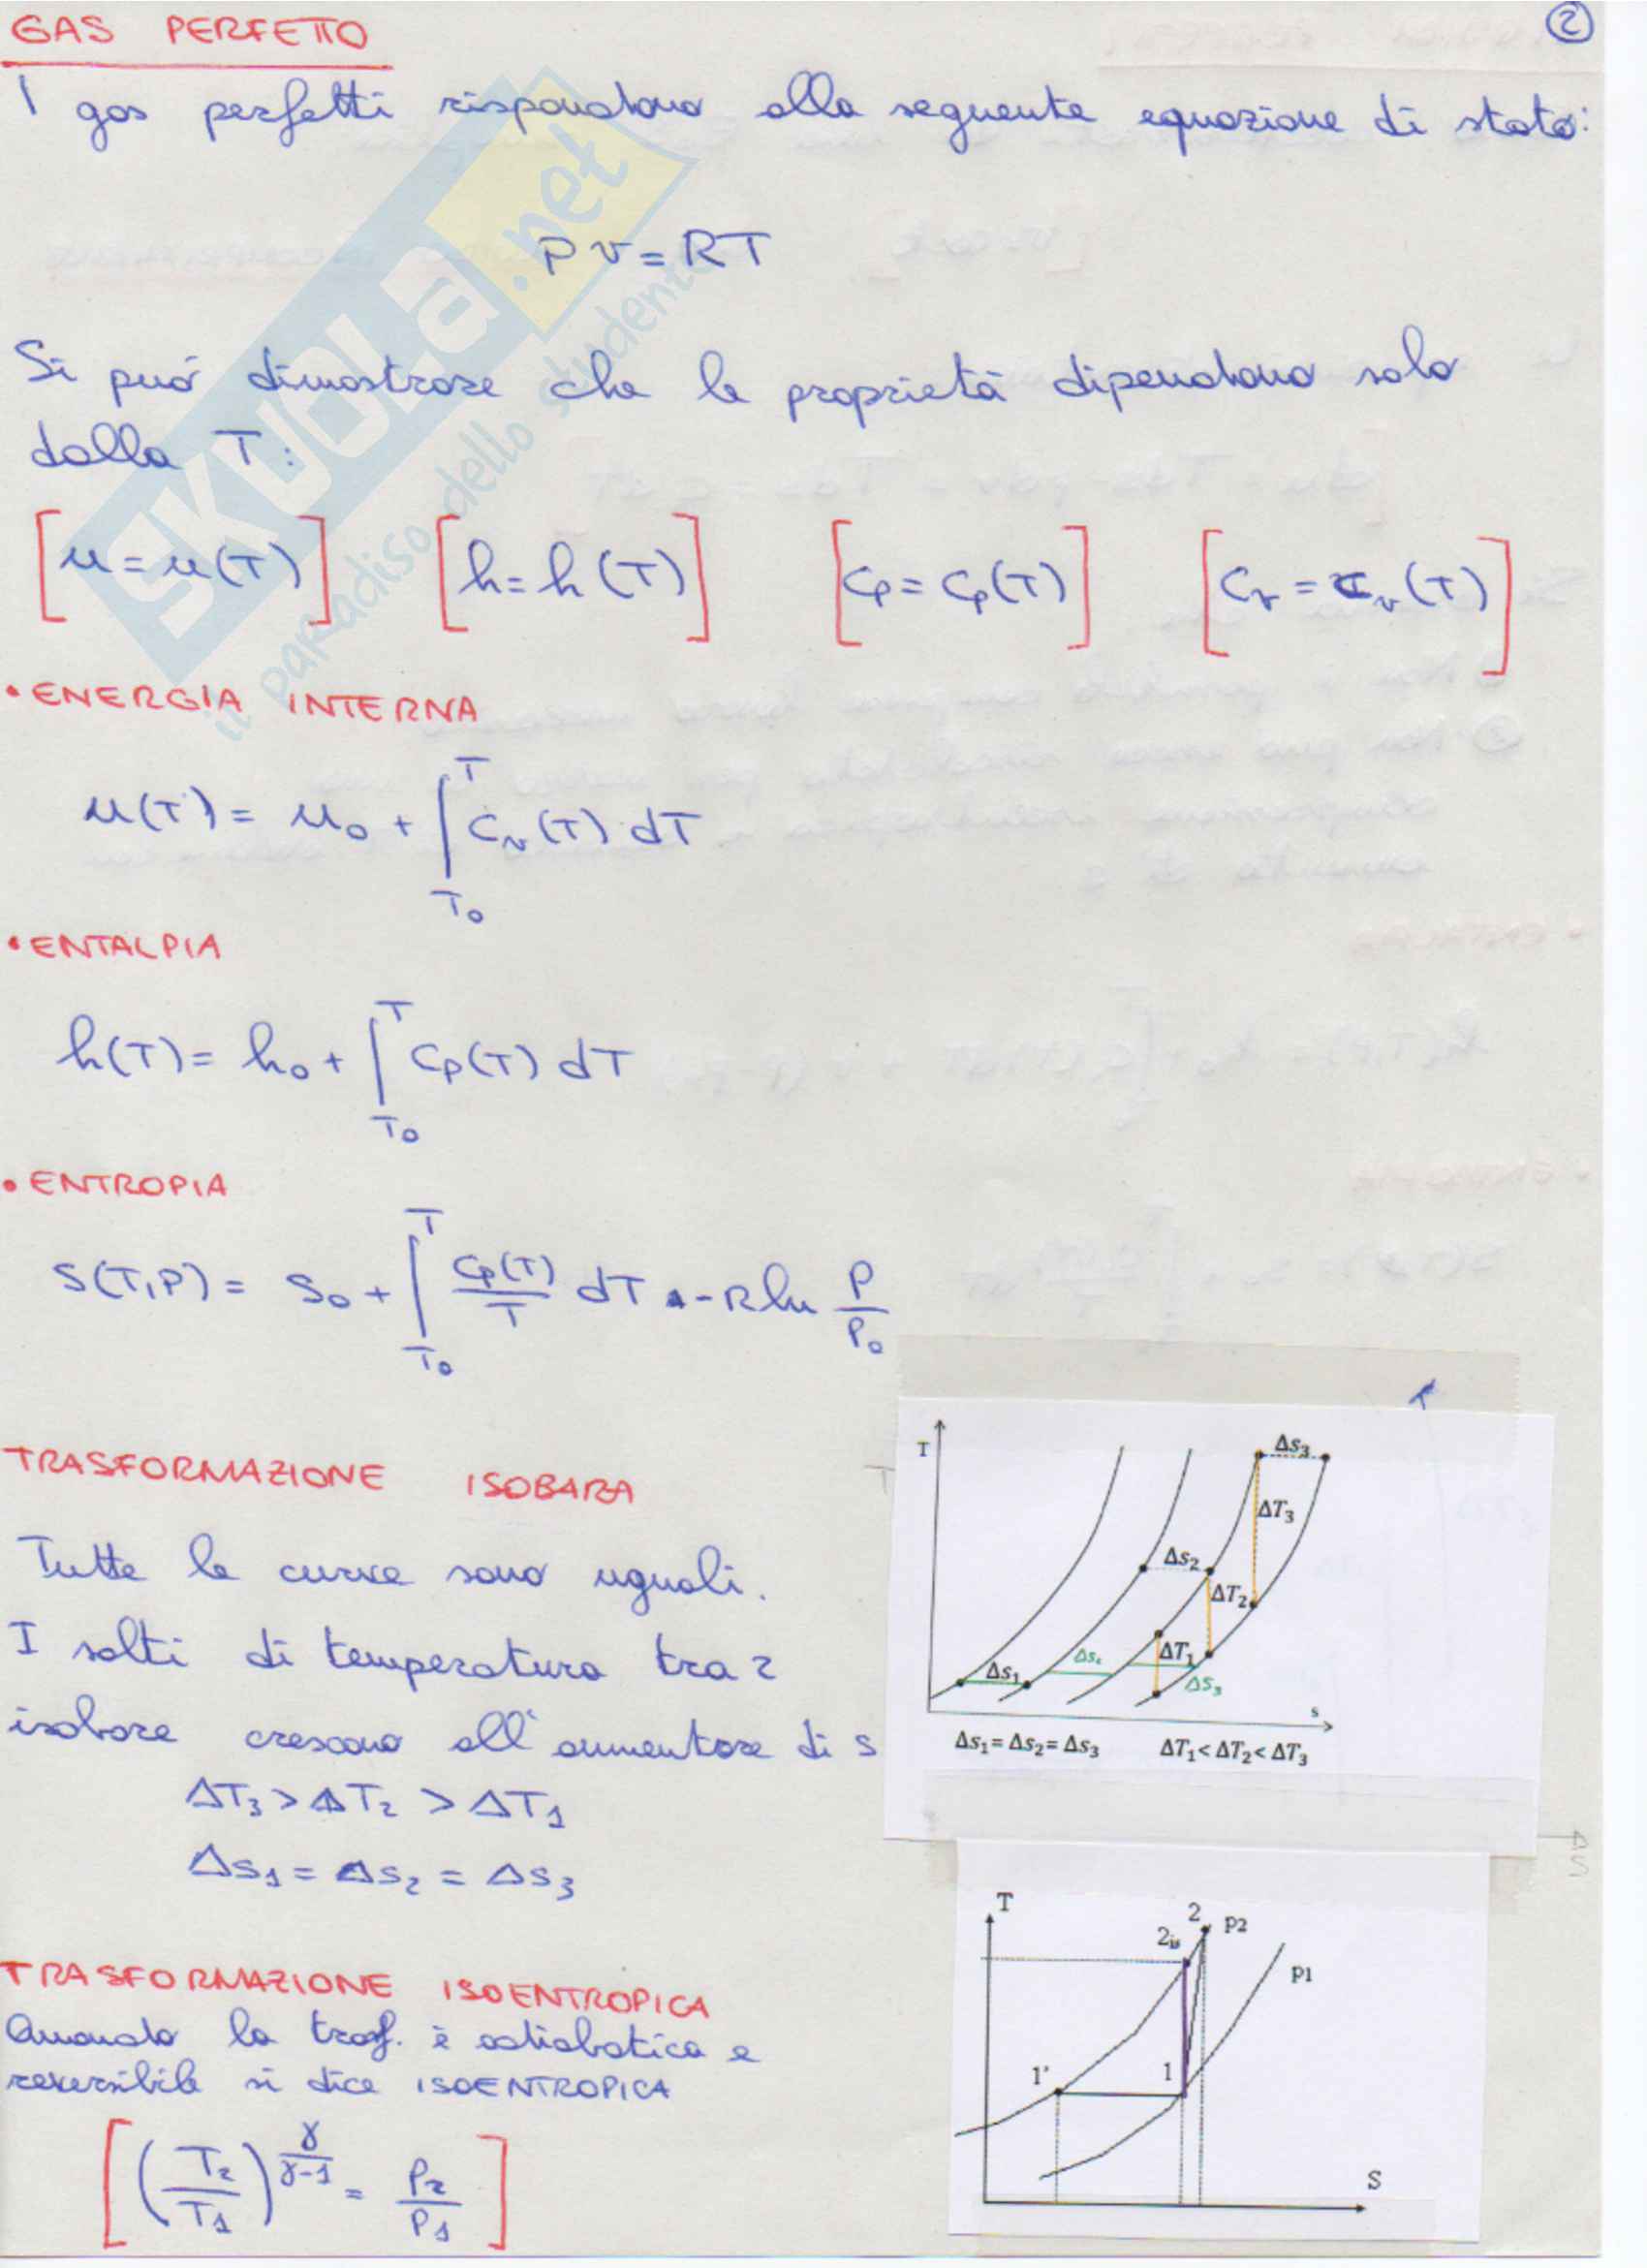 GAS PERFETTO
2
I gas perfetti rispondono alla seguente equazione di stato:
pv = RT
Si può dimostrare che le proprietà dipendono solo
dalla T:
[u = u(T)] [h = h(T)] [cp = cp(T)] [cv = cv(T)]
• ENERGIA INTERNA
u(T) = u₀ + ∫_{T₀}^{T} cv(T) dT
• ENTALPIA
h(T) = h₀ + ∫_{T₀}^{T} cp(T) dT
• ENTROPIA
s(T,P) = s₀ + ∫_{T₀}^{T} cp(T)/T dT - R ln P/P₀
TRASFORMAZIONE ISOBARA
Tutte le curve sono uguali.
I salti di temperatura tra 2
isobare crescono all'aumentare di s
ΔT₃ > ΔT₂ > ΔT₁
Δs₁ = Δs₂ = Δs₃
T
Δs₃
ΔT₃
Δs₂
ΔT₂
Δs₁
ΔT₁
Δs₃
s
Δs₁ = Δs₂ = Δs₃ ΔT₁ < ΔT₂ < ΔT₃
TRASFORMAZIONE ISOENTROPICA
Quando la trasf. è adiabatica e
reversibile si dice ISOENTROPICA
[(T₂/T₁)^{γ/(γ-1)} = P₂/P₁]
T
2
2is
p2
p1
1'
1
S
SKUOLA.net
il paradiso dello studente